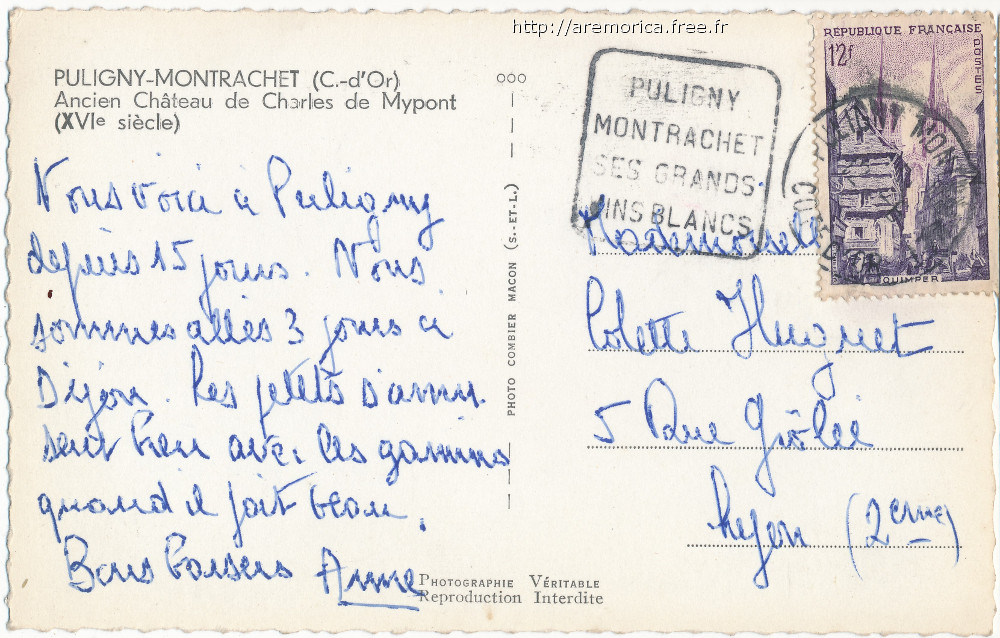 http://aremorica.free.fr
PULIGNY-MONTRACHET (C.-d'Or)
Ancien Château de Charles de Mypont
(XVIe siècle)
Nous voici à Puligny
depuis 15 jours. Nous
sommes allés 3 jours à
Dijon. Les petits s'amu
sent bien avec les gamins
quand il fait beau.
Bons baisers Anne
PHOTOGRAPHIE VÉRITABLE
Reproduction Interdite
PHOTO COMBIER MACON (S.-ET-L.)
PULIGNY
MONTRACHET
SES GRANDS
VINS BLANCS
RÉPUBLIQUE FRANÇAISE
12f
POSTES
QUIMPER
Mademoiselle
Colette Huguet
5 Rue Grôlée
Lyon (2eme)